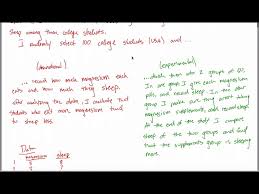 sleep among these college students.
I randomly select 100 college students (USA) and ...
(observational)
... record how much magnesium each
eats and how much they sleep.
After analyzing the data, I conclude that
students who eat more magnesium tend
to sleep less.
Data
magnesium sleep
(experimental)
... divide them into 2 groups of 50.
In one group I give each magnesium
pills, and record sleep. In the other
group I
magnesium supplements, and record sleep
the end of the study I compare
sleep of the two groups and find
that the supplements group is sleeping
more.